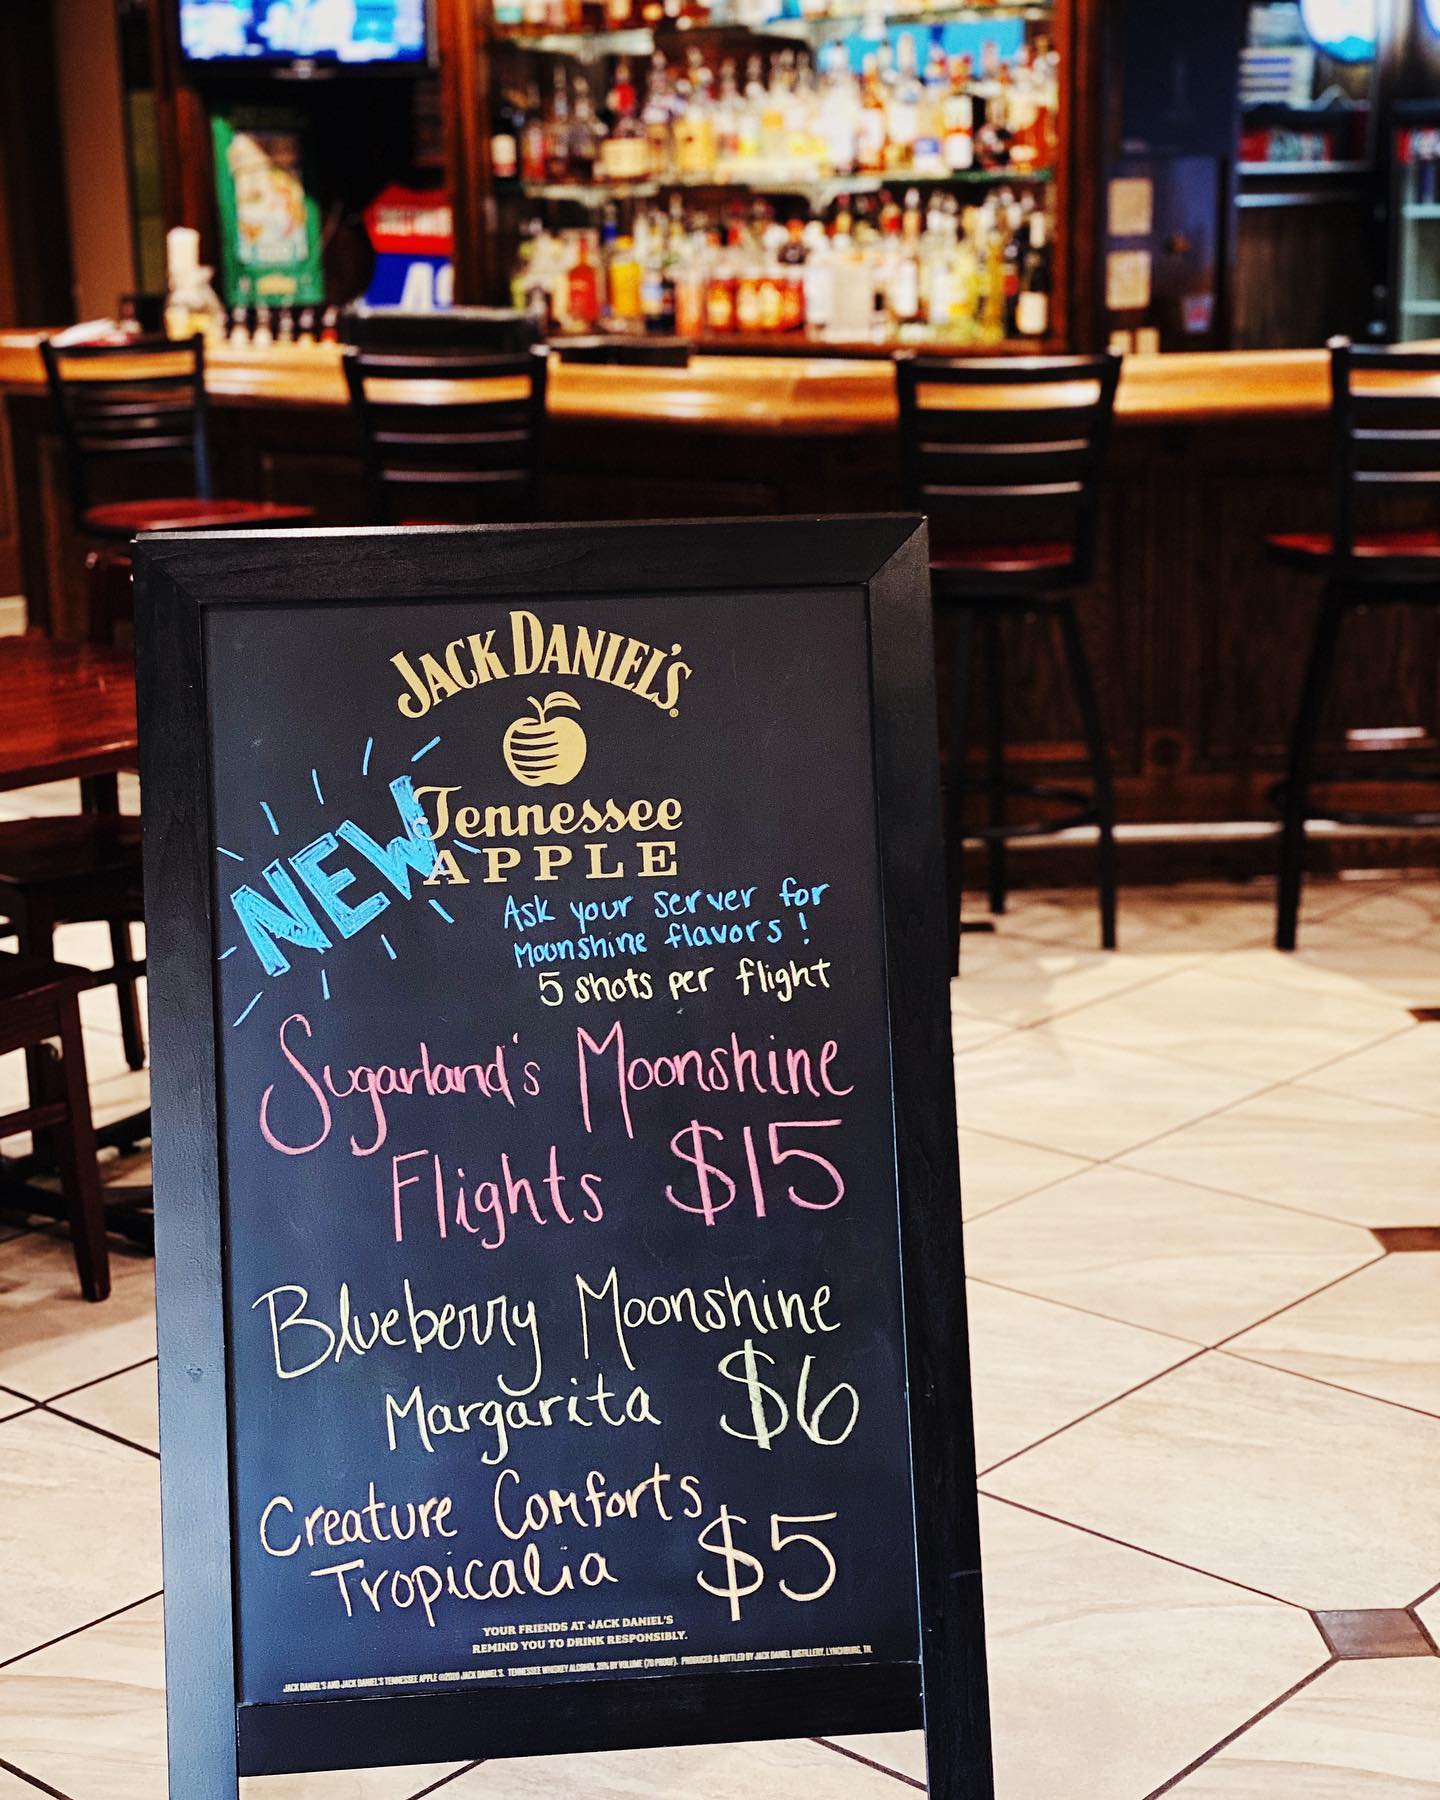 JACK DANIEL'S
Tennessee
APPLE
NEW
Ask your server for
Moonshine flavors!
5 shots per flight
Sugarland's Moonshine
Flights $15
Blueberry Moonshine
Margarita $6
Creature Comforts
Tropicalia $5
YOUR FRIENDS AT JACK DANIEL'S
REMIND YOU TO DRINK RESPONSIBLY.
JACK DANIEL'S AND JACK DANIEL'S TENNESSEE APPLE ©2020 JACK DANIEL'S. TENNESSEE WHISKEY ALCOHOL 35% BY VOLUME (70 PROOF). PRODUCED & BOTTLED BY JACK DANIEL DISTILLERY, LYNCHBURG, TN.